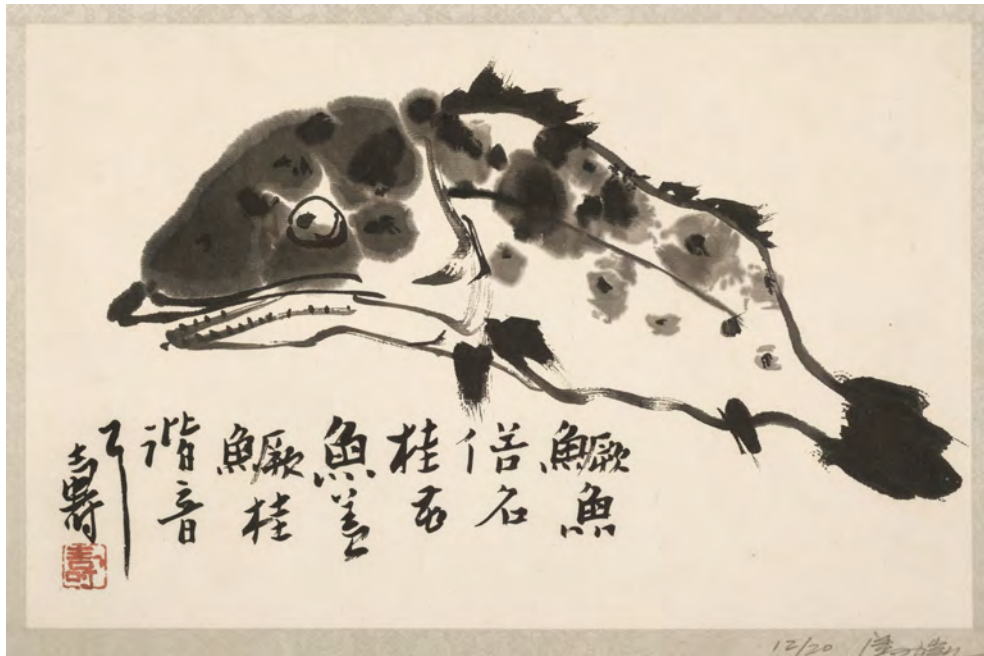 鱖魚
俗名
桂花
魚蓋
鱖桂
谐音
耳
壽
12/20